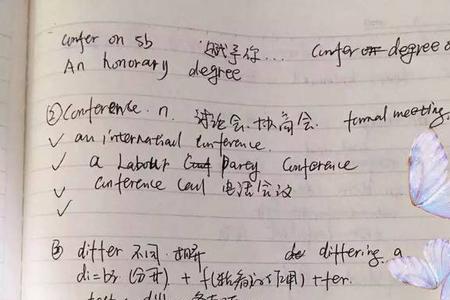 confer on sb 试予你... Confer degree o
An honorary degree
② Conference. n. 讨论会. 协商会. formal meeting.
✓ an internatianl conference.
✓ a Labour party Conference
✓ Conference call 电话会议
✓
③ differ 不同. differing. a
di=bis (分开) + +fer.